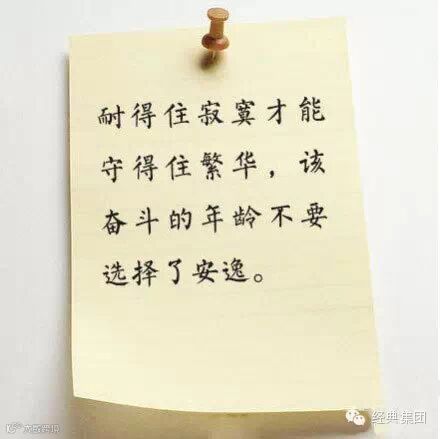 耐得住寂寞才能
守得住繁华，该
奋斗的年龄不要
选择了安逸。
经典集团